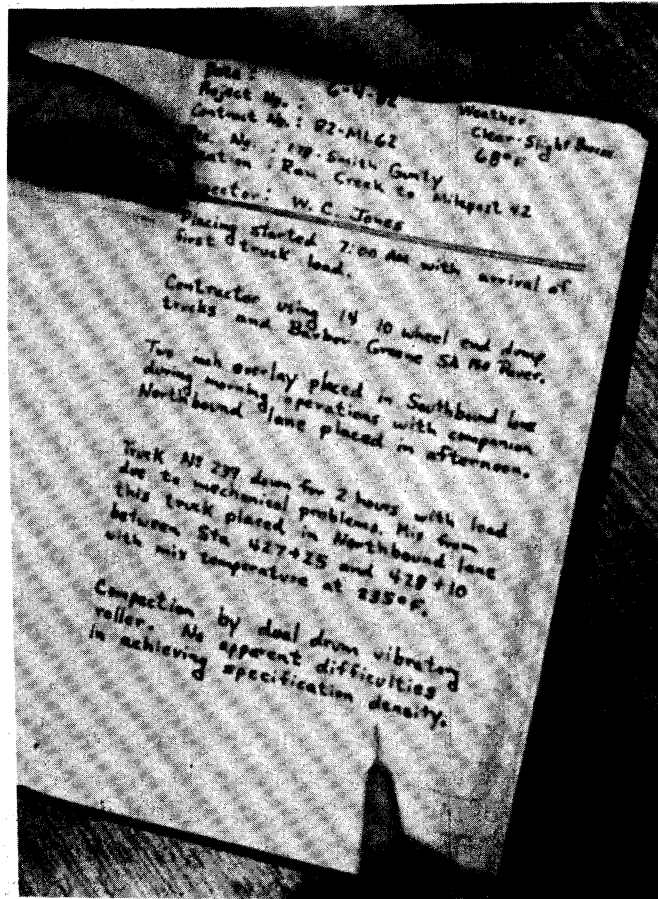 Date : 6-4-82
Project No. :
Contract No. : 82-ML62
No. : 178 - Smith County
: Raw Creek to Milepost 42
: W. C. Jones
Weather
Clear - Slight Breeze
68°F
Placing started 7:00 AM with arrival of
first truck load.
Contractor using 14 10 wheel end dump
trucks and Barber-Greene SA Paver.
Two inch overlay placed in Southbound lane
during morning operations with companion
Northbound lane placed in afternoon.
Truck Nº 237 down for 2 hours with load
due to mechanical problems. Mix from
this truck placed in Northbound lane
between Sta 427+25 and 428+10
with mix temperature at 235°F.
Compaction by dual drum vibratory
roller. No apparent difficulties
in achieving specification density.